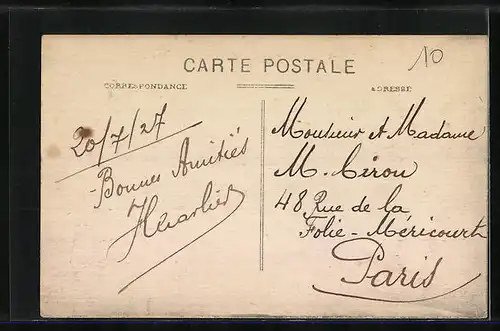 CARTE POSTALE
10
CORRESPONDANCE
ADRESSE
20/7/27
Bonnes Amitiés
Monsieur et Madame
M. Cirou
48 Rue de la
Folie-Méricourt
Paris